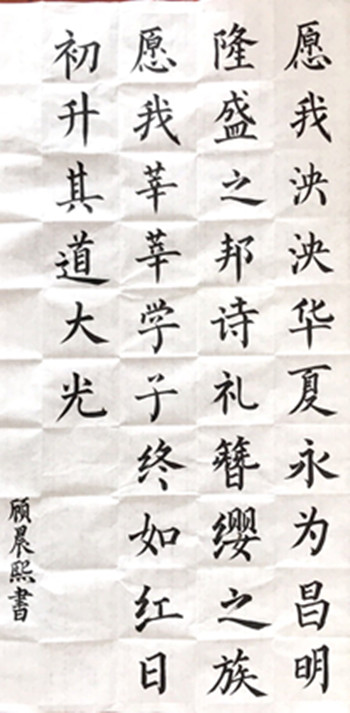 愿我泱泱华夏永为昌明
隆盛之邦诗礼簪缨之族
愿我莘莘学子终如红日
初升其道大光
顾晨熙書